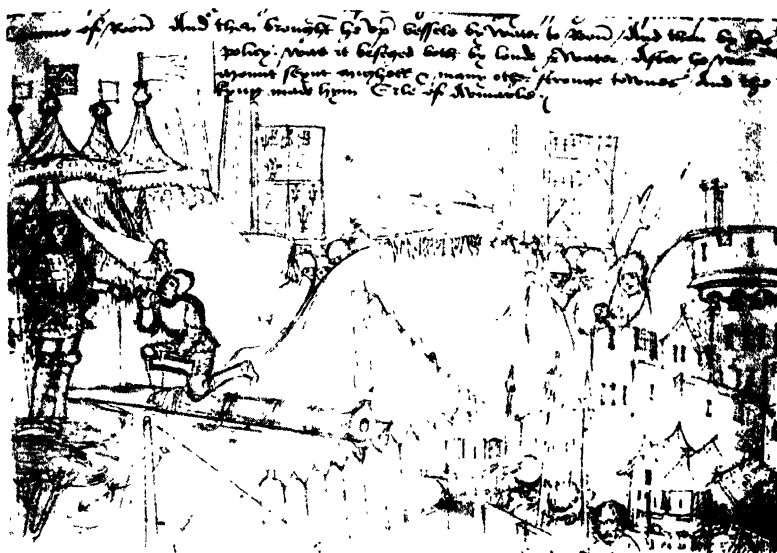 of Roon And then brought he vp vessels by water to Roon / And then by
policy was it beseged both by londe & water . After he wan
mount seynt mighell & many othr stronge townes / And the
kyng made hym Erle of Awmarle /